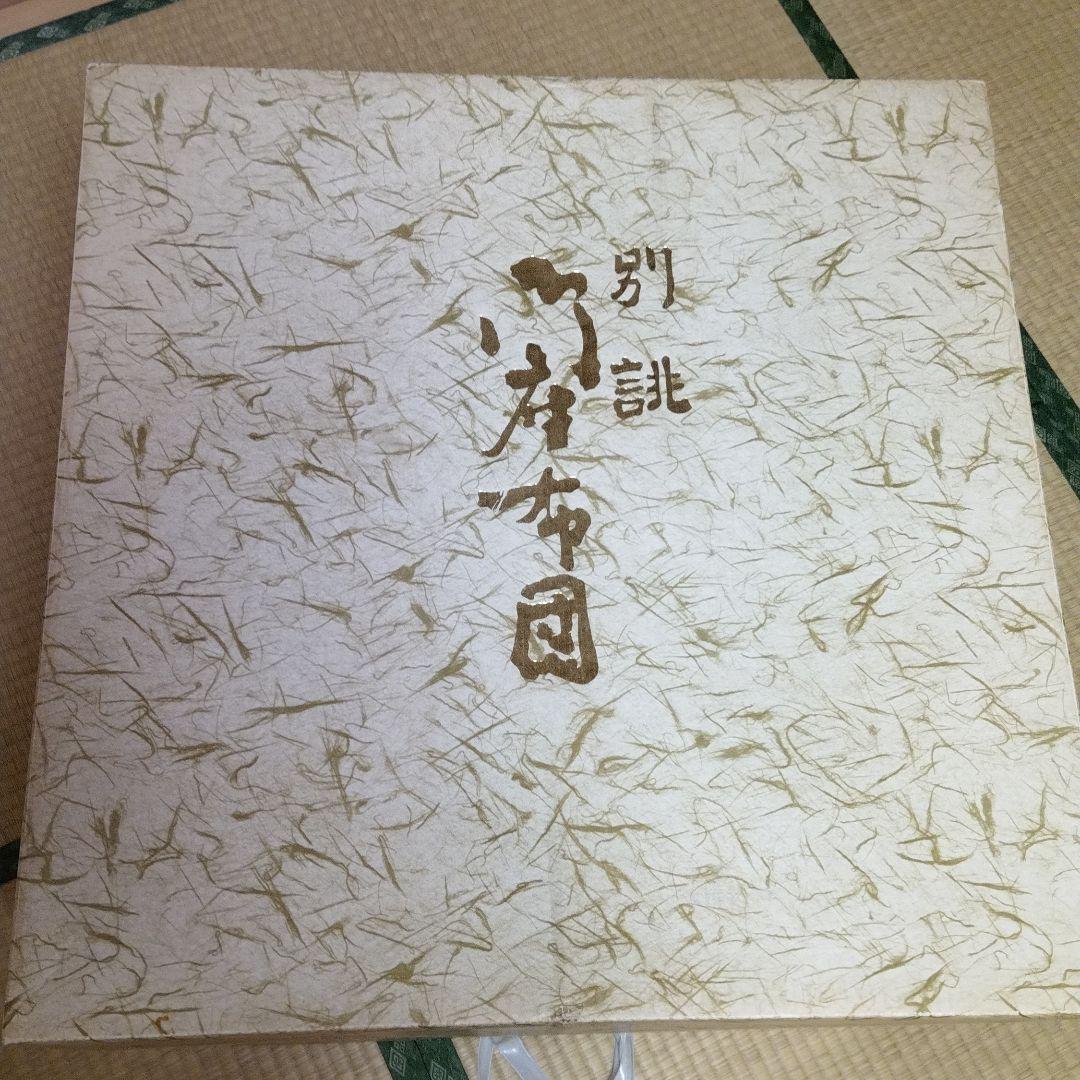 別誂
御座布団